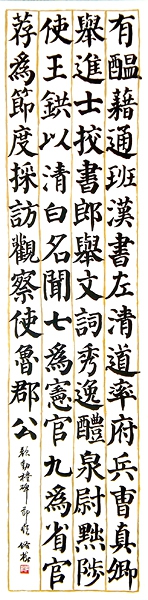 有醞藉通班漢書左清道率府兵曹真卿
舉進士挍書郎舉文詞秀逸醴泉尉黜陟
使王鉷以清白名聞七為憲官九為省官
荐為節度採訪觀察使魯郡公
顏勤禮碑